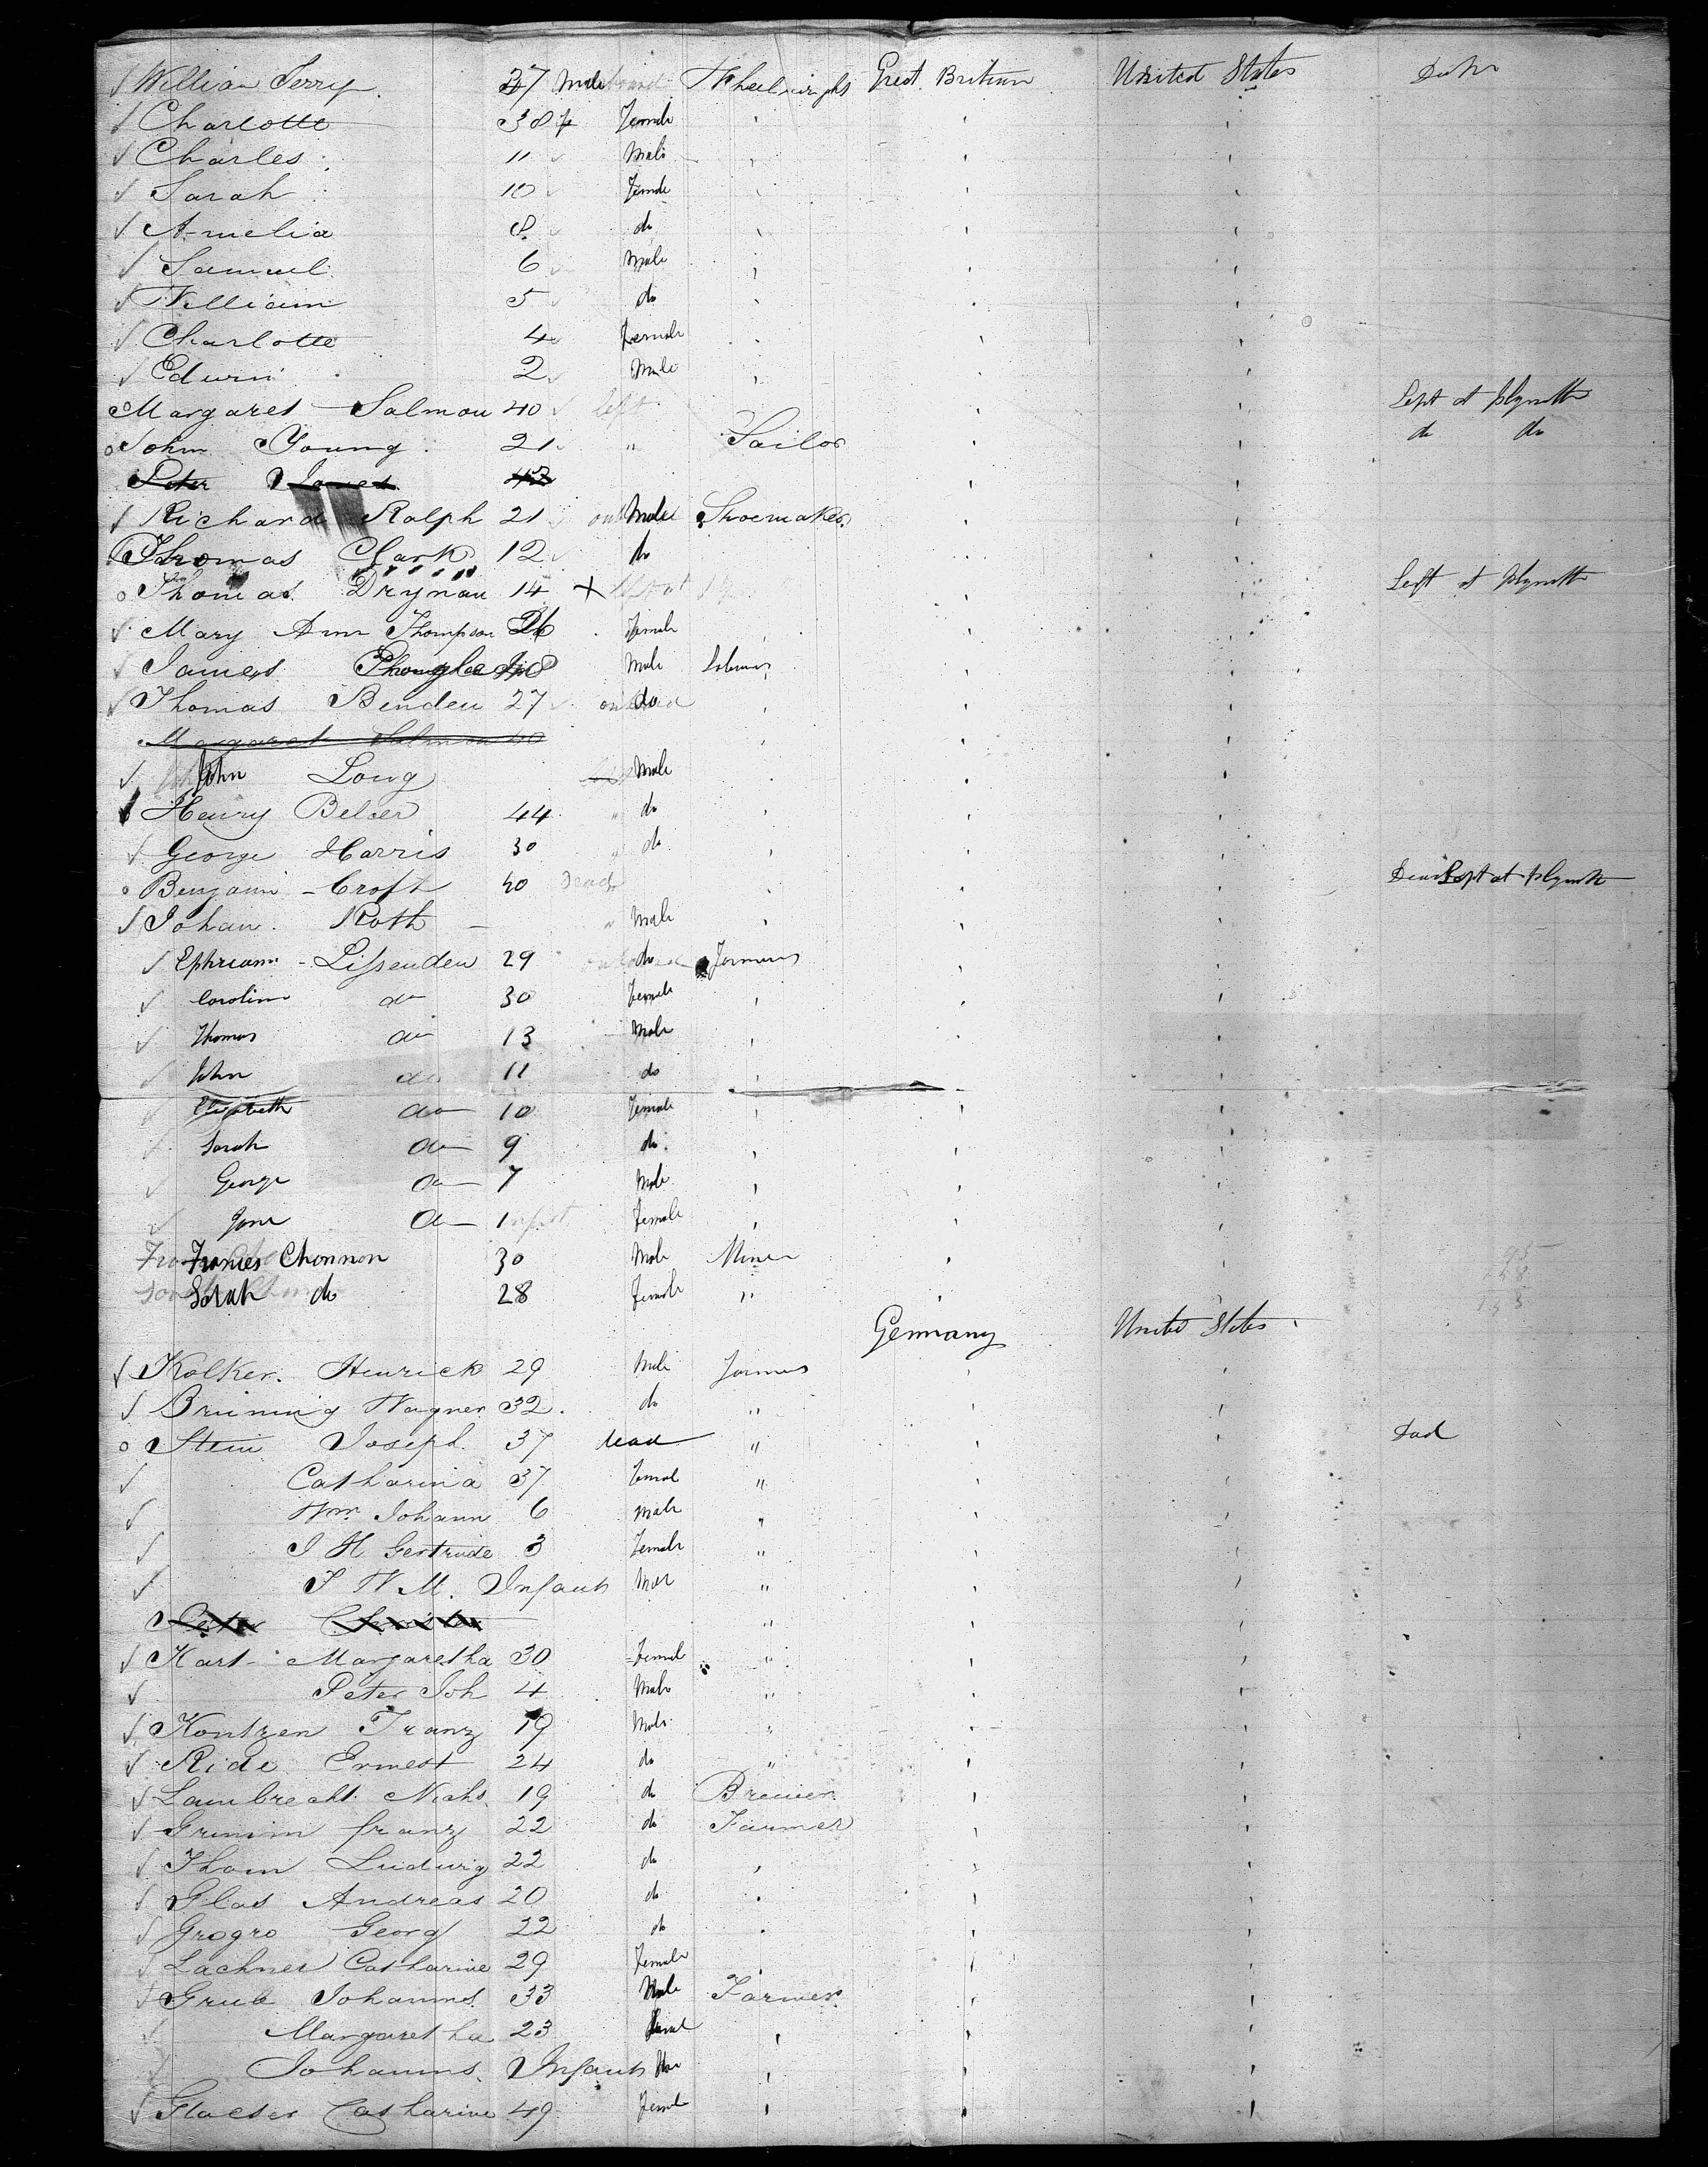 William Terry 37 Male Wheelwright Great Britain United States
Charlotte 38 Female
Charles 11 Male
Sarah 10 Female
Amelia 8 do
Samuel 6 Male
William 5 do
Charlotte 4 Female
Edwin 2 Male
Margaret Salmon 40 left Left at Plymth
John Young 21 " Sailor do do
Peter Jones 42
Richard Ralph 21 Male Shoemaker
Thomas Clark 12 do
Thomas Drynan 14 Left at Plymth
Mary Ann Thompson 26 Female
James 48 Male Laborer
Thomas Benden 27 do
Margaret Salmon 40
John Long Male
Henry Belser 44 " do
George Harris 30 " do
Benjamin Croft 40 dead Left at Plymth
Johan Roth " Male
Ephream Lissenden 29 do Farmer
Caroline do 30 Female
Thomas do 13 Male
John do 11 do
Elizabeth do 10 Female
Sarah do 9 do
George do 7 Male
Jane do Infant Female
Frances Channon 30 Male Miner
Sarah do 28 Female "
Germany United States
Kolker Heinrich 29 Male Farmer
Bruning Wagner 32 do "
Stein Joseph 37 dead " Dead
Catharina 37 Femal "
Wm Johann 6 Male "
J H Gertrude 3 Female "
J W M. Infant Male "
"
Hart Margaretha 30 Femal "
Peter Joh 4 Male "
Kontzen Franz 19 Male "
Ride Ernest 24 do "
Lambrecht Nichs 19 do Brewer
Grimm franz 22 do Farmer
Thom Ludwig 22 do
Glas Andreas 20 do
Grogro Georg 22 do
Lachner Catharine 29 Female
Grub Johannes 33 Male Farmer
Margaretha 23 Femal
Johannes Infant
Glaeser Catharine 49 Femal